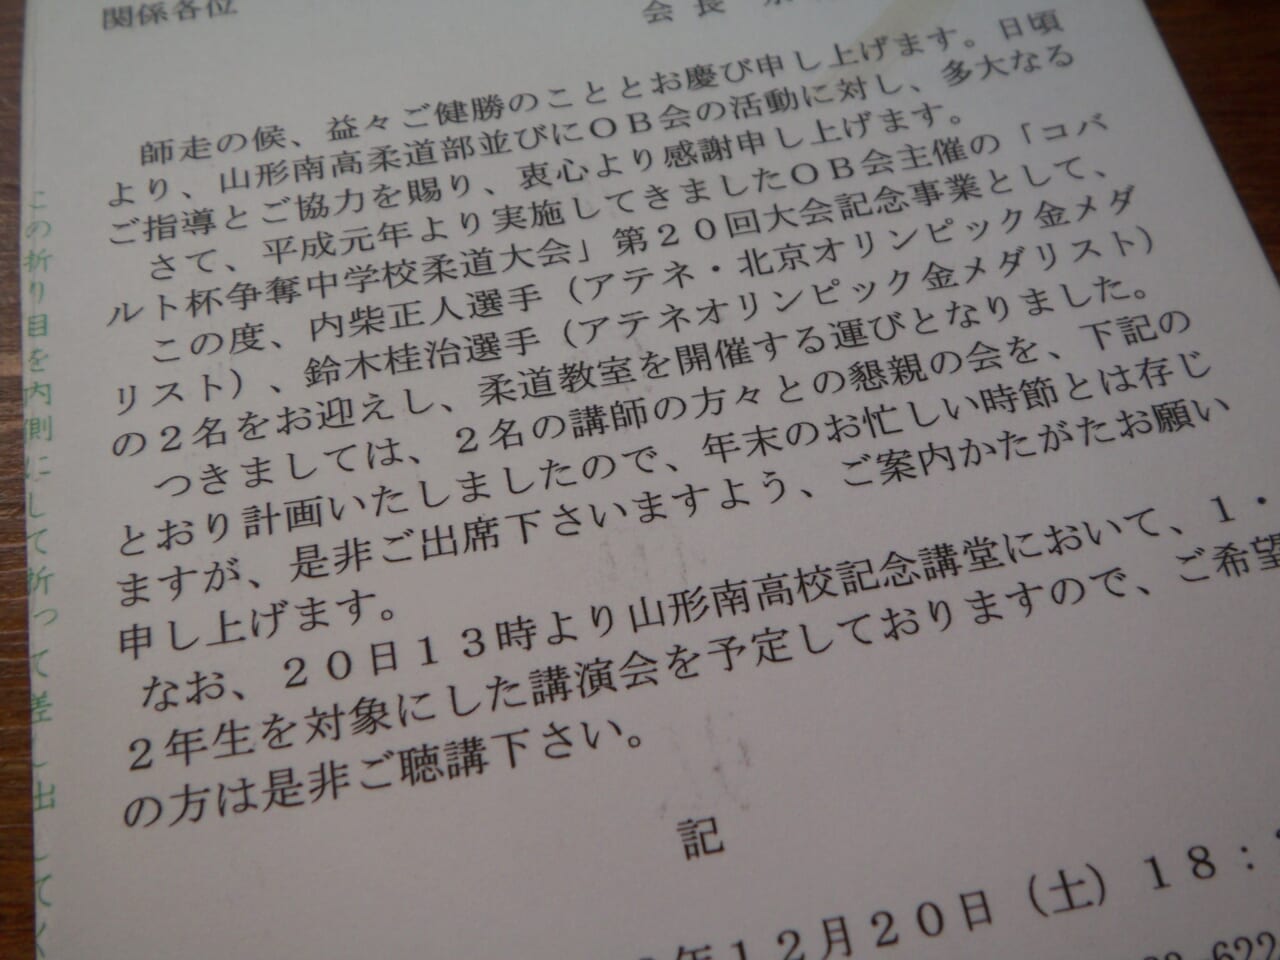 関係各位
会長
師走の候、益々ご健勝のこととお慶び申し上げます。日頃
より、山形南高柔道部並びにＯＢ会の活動に対し、多大なる
ご指導とご協力を賜り、衷心より感謝申し上げます。
さて、平成元年より実施してきましたＯＢ会主催の「コバ
ルト杯争奪中学校柔道大会」第２０回大会記念事業として、
この度、内柴正人選手（アテネ・北京オリンピック金メダ
リスト）、鈴木桂治選手（アテネオリンピック金メダリスト）
の２名をお迎えし、柔道教室を開催する運びとなりました。
つきましては、２名の講師の方々との懇親の会を、下記の
とおり計画いたしましたので、年末のお忙しい時節とは存じ
ますが、是非ご出席下さいますよう、ご案内かたがたお願い
申し上げます。
なお、２０日１３時より山形南高校記念講堂において、１・
２年生を対象にした講演会を予定しておりますので、ご希望
の方は是非ご聴講下さい。
記
年１２月２０日（土）１８：
-622
この折り目を内側にして折って差し出してく